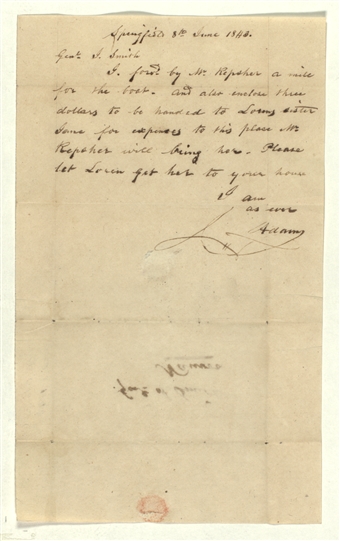 Springfield 8th June 1843.
Genl. J. Smith
I ford. by Mr. Repsher a mill
for the boat. And also enclose three
dollars to be handed to Lorens sister
Jane for expenses to this place Mr
Repsher will bring her. Please
let Loren get her to your house
I am
as ever
J Adams
Nauvoo
Genl. J. Smith